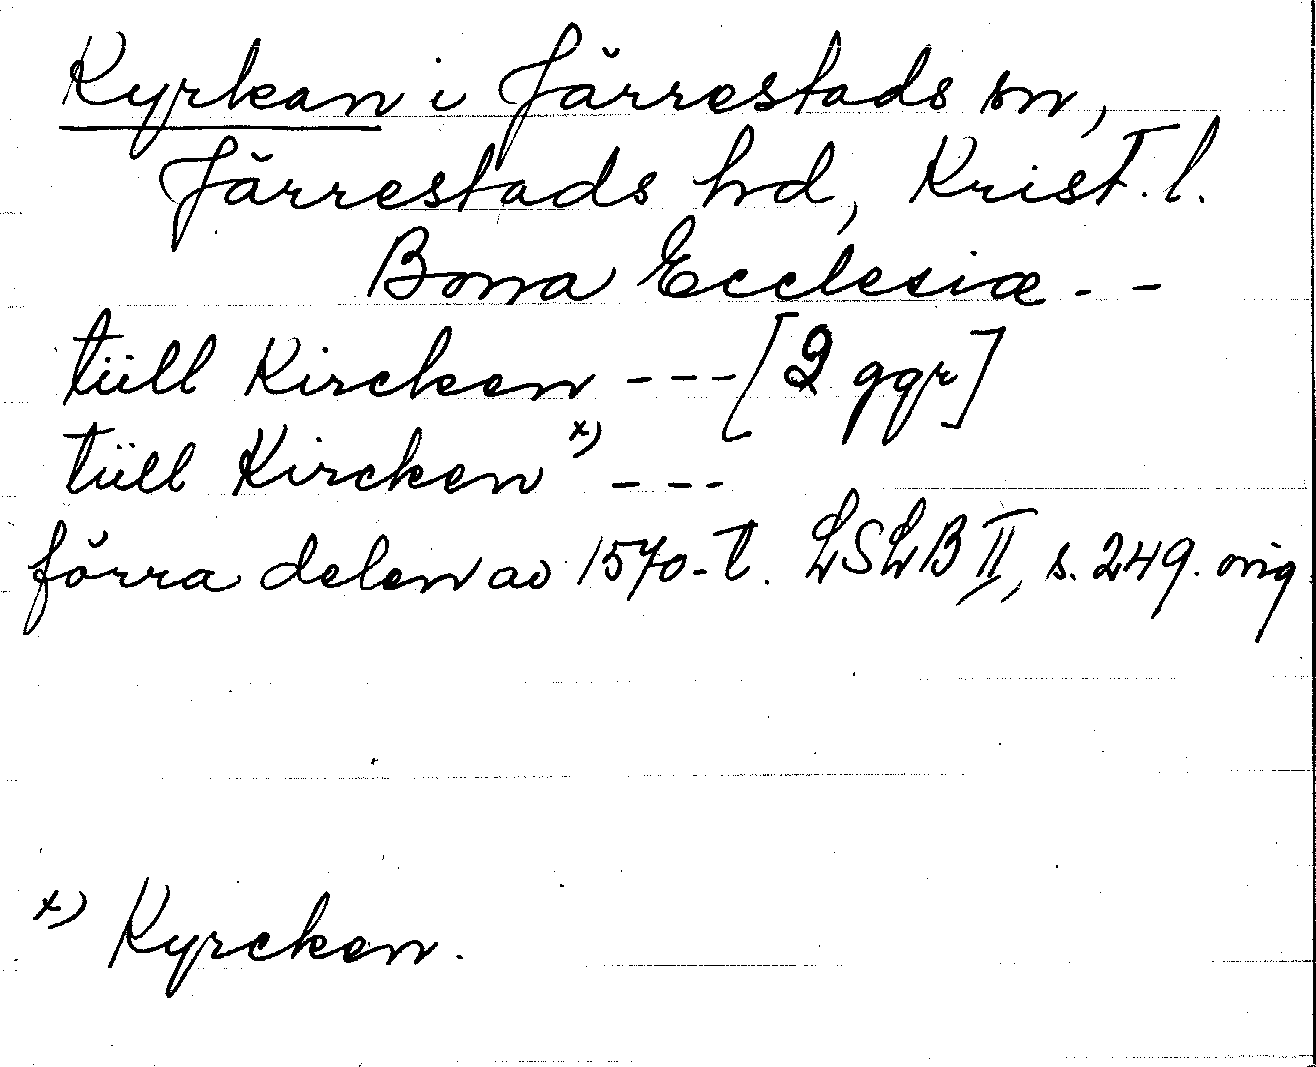 Kyrkan i Järrestads sn,
Järrestads hd, Krist. l.
Bona Ecclesiæ - -
tiill Kircken - - - [2 ggr]
tiill Kircken x) - - -
förra delen av 1570-t. LSLB II, s. 249. orig
x) Kyrcken.